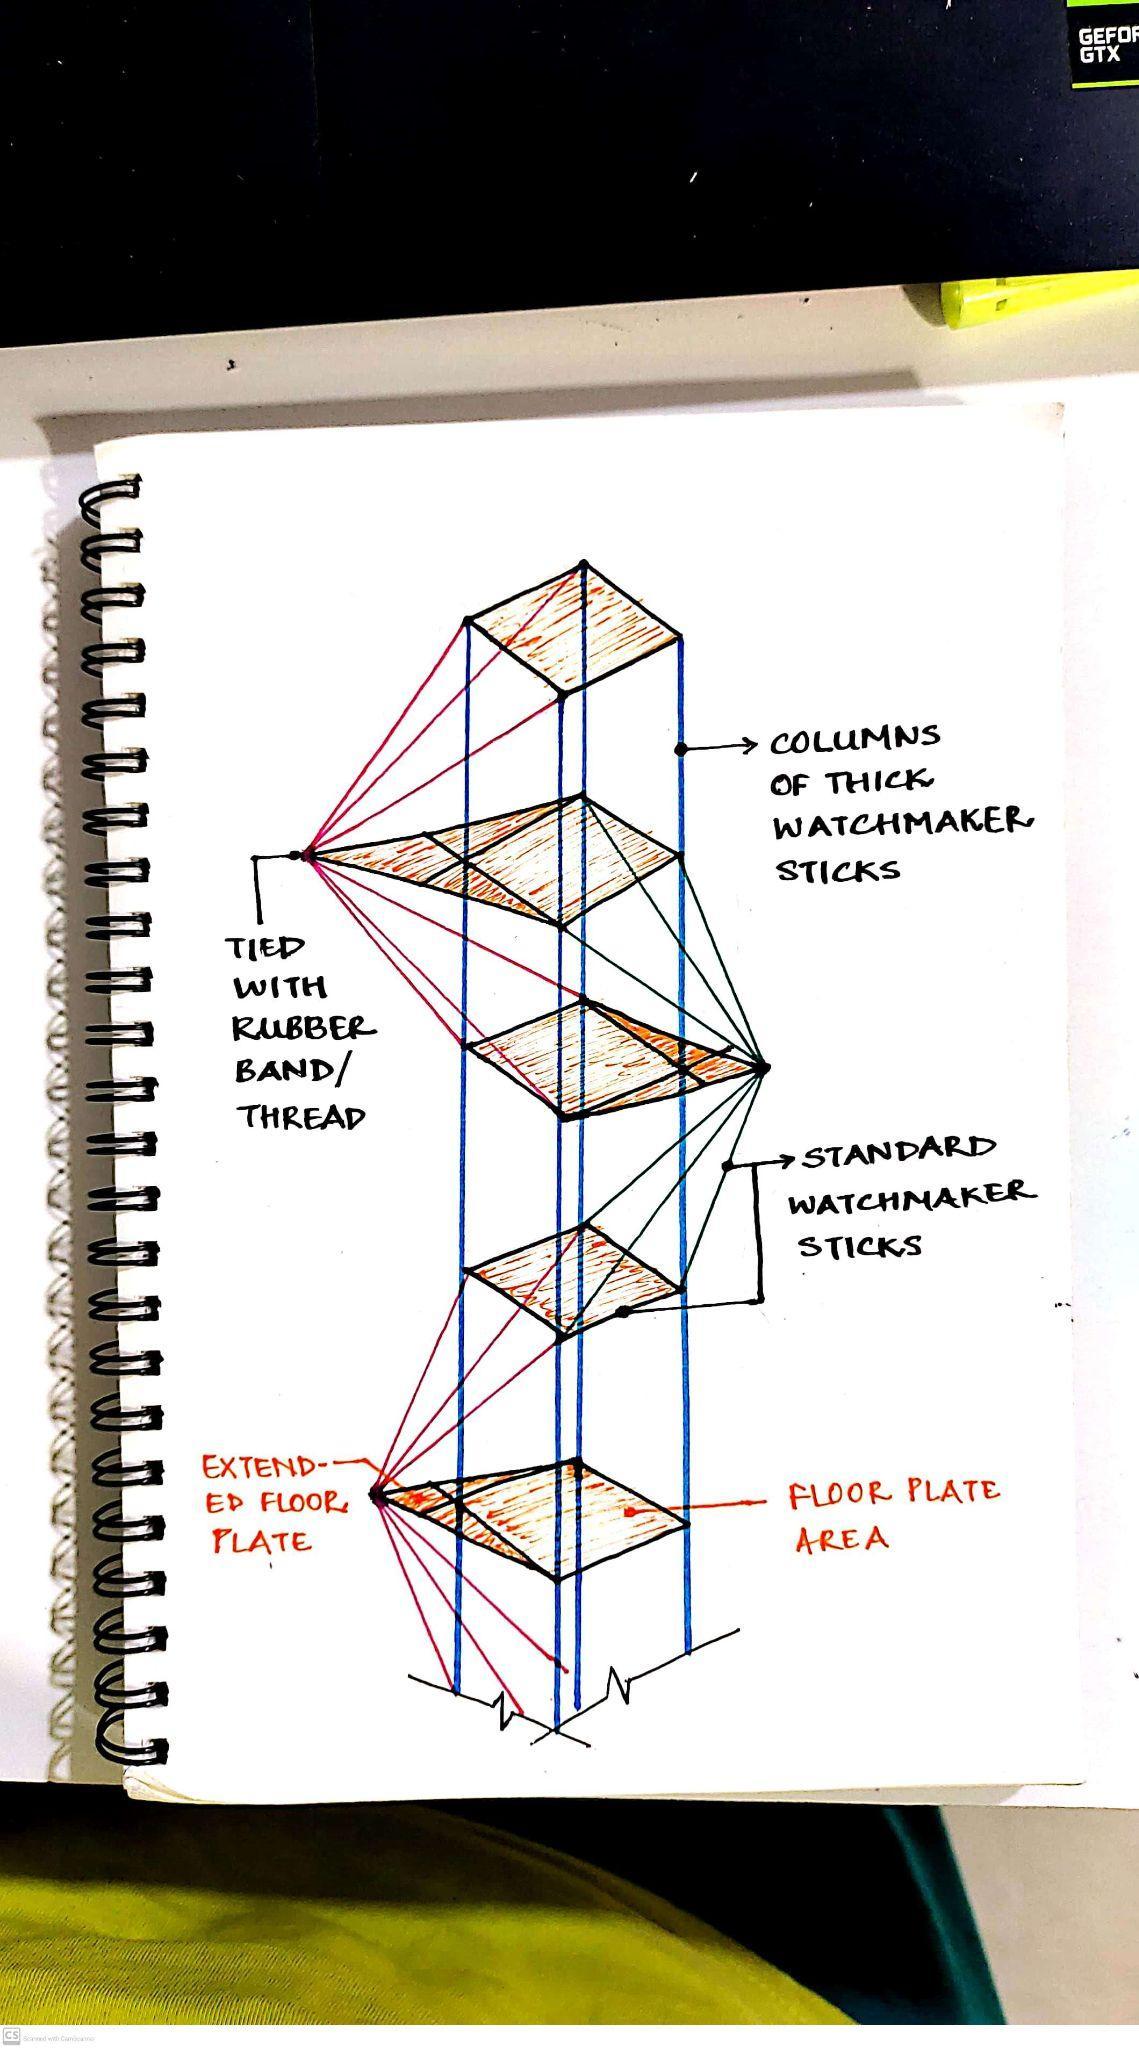 GEFOR
GTX
COLUMNS
OF THICK
WATCHMAKER
STICKS
TIED
WITH
RUBBER
BAND/
THREAD
STANDARD
WATCHMAKER
STICKS
EXTEND-
ED FLOOR
PLATE
FLOOR PLATE
AREA
CS Scanned with CamScanner